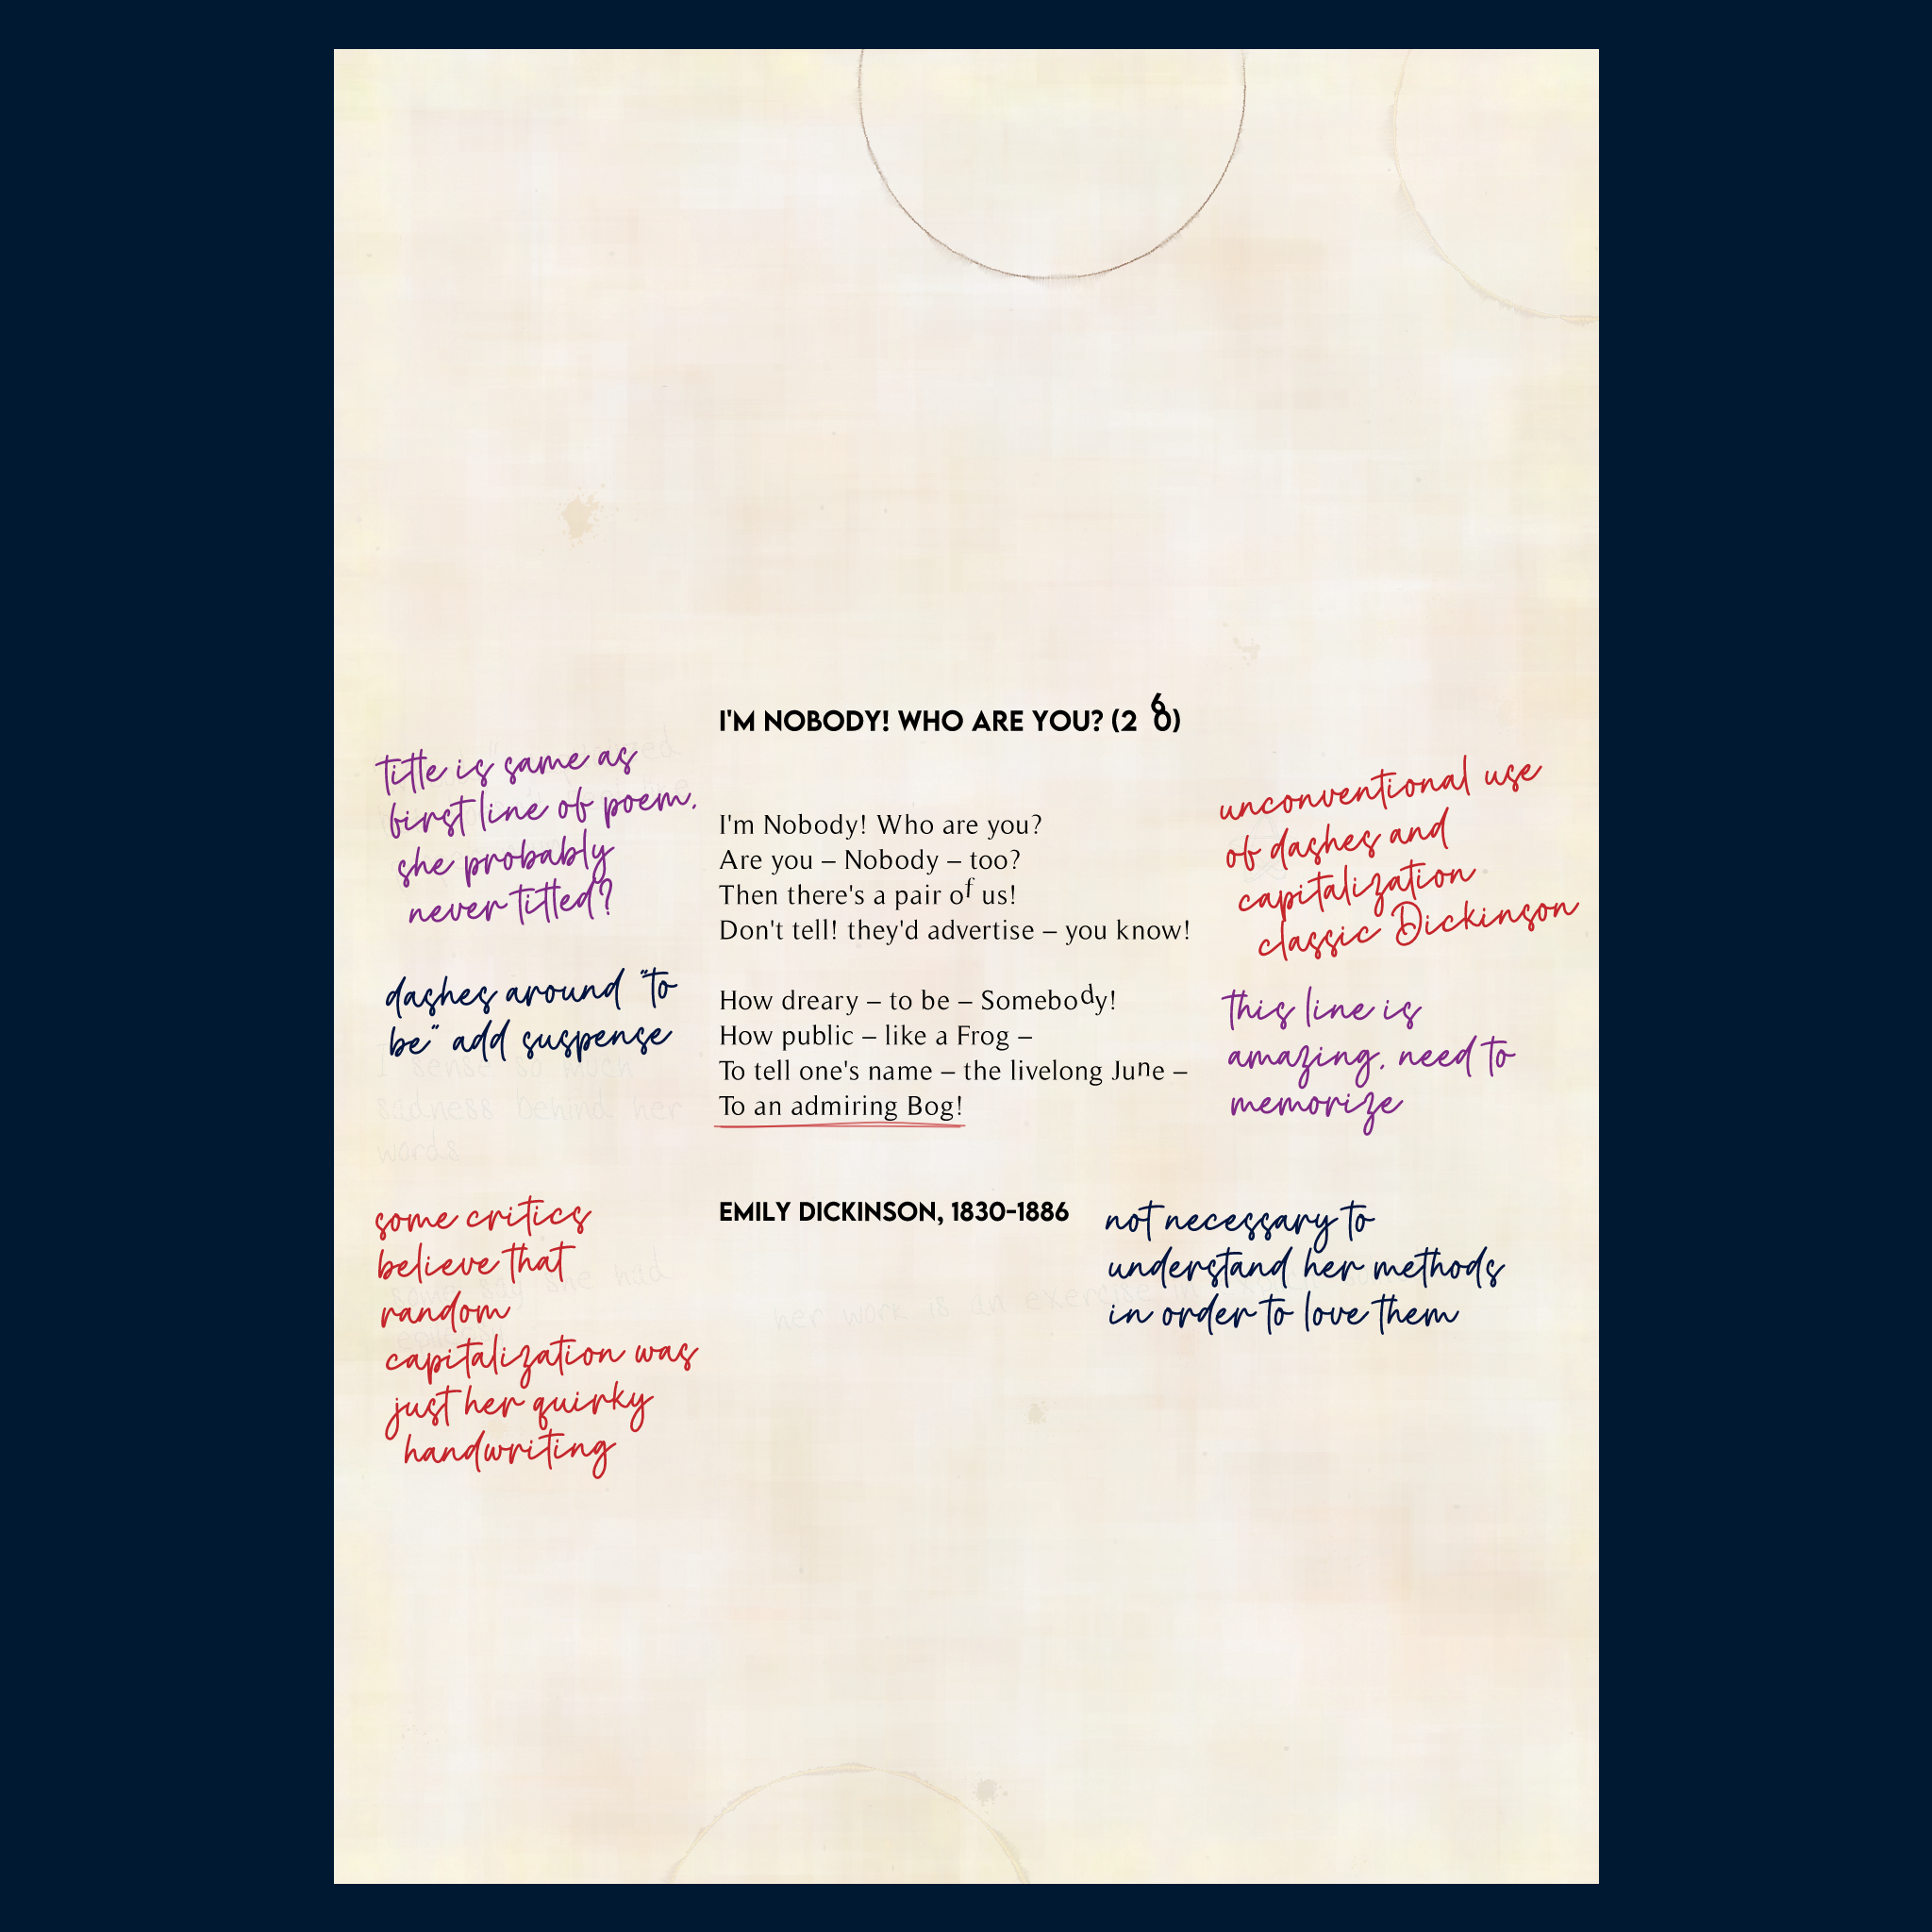 I'M NOBODY! WHO ARE YOU? (260)
title is same as
first line of poem.
she probably
never titled?
I'm Nobody! Who are you?
Are you – Nobody – too?
Then there's a pair of us!
Don't tell! they'd advertise – you know!
unconventional use
of dashes and
capitalization
classic Dickinson
dashes around "to
be" add suspense
How dreary – to be – Somebody!
How public – like a Frog –
To tell one's name – the livelong June –
To an admiring Bog!
this line is
amazing. need to
memorize
I sense so much
sadness behind her
words
some critics
believe that
random
capitalization was
just her quirky
handwriting
EMILY DICKINSON, 1830-1886
not necessary to
understand her methods
in order to love them
some say she had
epilepsy
her work is an exercise in